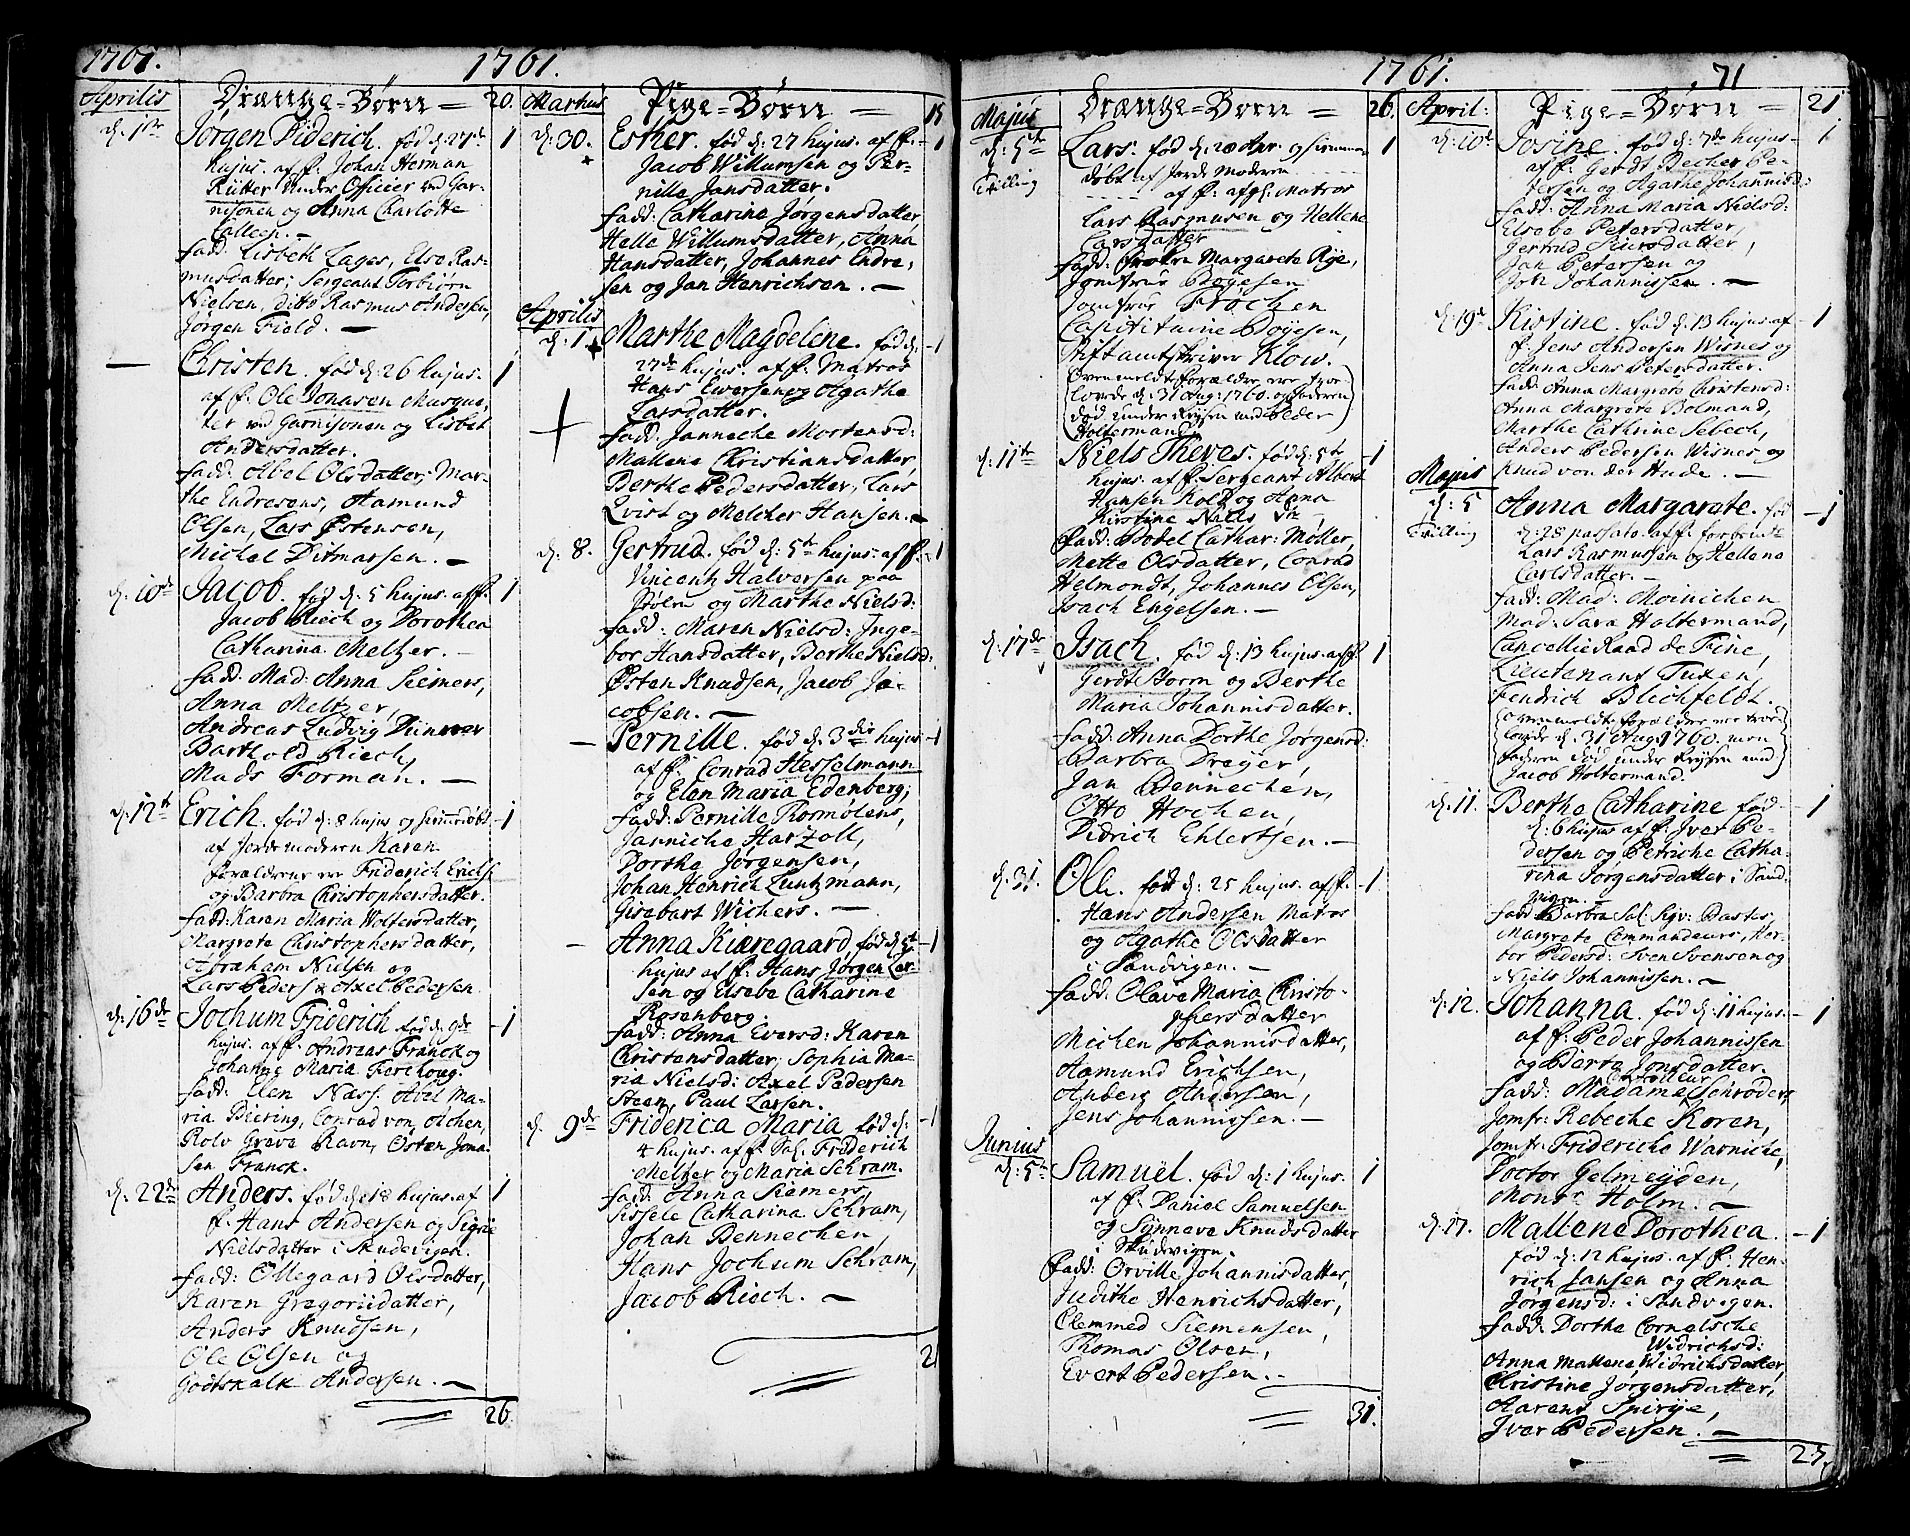 1761.
1761.
Aprilis
Drænge-Børn — 20.
d: 1te
Jørgen Diderich. fød d: 27de 1
hujus. af f. Johan Herman
Rütter Under Officier ved Gar-
nisonen og Anna Charlotte
Fadd: Lisbeth Lages, Else Ras-
musdatter; Sergeant Torbiørn
Nielsen, ditto Rasmus Andersen,
Jørgen Fiold. —
— Christen. fød d: 26 hujus. 1
af f. Ole Jonasen Musque-
ter ved Garnisonen og Lisbet
Andersdatter.
Fadd: Abel Olsdatter, Mar-
the Endresens, Aamund
Olsen, Lars Østensen,
Michel Ditmarsen. —
d: 10de Jacob. fød d: 5 hujus. af f. 1
Jacob Riech og Dorothea
Catharina Meltzer. —
Fadd: Mad: Anna Siemers,
Anna Meltzer,
Andreas Ludvig
Barthold Riech,
Mads Forman. —
d: 12te Erich. fød d: 8 hujus og hiemedøbt 1
af Jordemoderen Karen
Forældrene ere Friderich Erichs
og Barbra Christophersdatter.
Fadd: Karen Maria Woltersdatter,
Margrete Christophersdatter,
Abraham Nielsen og
Lars Peders & Axel Pedersen.
d: 16de Jochum Friderich fød d: 9de 1
hujus. af f. Andreas Franck og
Johanne Maria
Fadd: Elen Næss. Abel Ma-
ria Diering, Conrad von Achen,
Rolv Greve Ravn, Osten Jona-
sen Franck.
d: 22de Anders. fød d: 18 hujus. af 1
f. Hans Andersen og Signe
Nielsdatter i Skudevigen.
Fadd: Ollegaard Olsdatter,
Karen Gregoriidatter,
Anders Knudsen,
Ole Olsen og
Godtskalk Andersen. —
26.
Martius
Pige-Børn — 15
d: 30. Esther. fød d: 27 hujus. af f. 1
Jacob Willumsen og Per-
nille Jansdatter.
Fadd: Catharine Jørgensdatter,
Helle Willumsdatter, Anna
Hansdatter, Johannes Endre-
sen og Jan Henrichsen. —
Aprilis
d: 1 Marthe Magdelene. fød d: 1
27de hujus. af f. Matros
Hans Ewersen og Agathe
Larsdatter.
Fadd: Janneche Mortensd:
Mallene Christiansdatter,
Berthe Pedersdatter, Lars
Qvist og Melcher Hansen. —
d: 8. Gertrud. fød d: 5te hujus. af f. 1
Vincentz Halversen paa
Stølen og Marthe Nielsd:
Fadd: Maren Nielsd: Inge-
bor Hansdatter, Berthe Nielsd:
Østen Knudsen, Jacob Ja-
cobsen. —
— Pernille. fød d: 3die hujus 1
af f. Conrad Hesselmann
og Elen Maria Edenberg;
Fadd: Pernille Rosmølens,
Janniche Harzoll,
Dorthe Jørgensen,
Johan Henrich Luntzmann,
Gisebart Wichers. —
— Anna Kiæregaard, fød d: 5te 1
hujus af f. Hans Jørgen Lar-
sen og Elsebe Catharine
Rosenberg.
Fadd: Anna Eversd: Karen
Christensdatter; Sophia Ma-
ria Nielsd: Axel Pedersen
Steen, Paul Larsen.
d: 9de Friderica Maria fød d: 1
4 hujus. af f. Sal. Friderich
Meltzer og Maria Schram.
Fadd: Anna Siemers,
Sissele Catharina Schram,
Johan Bennechen,
Hans Jochum Schram,
Jacob Riech. —
21
1761.
71
Majus
Drænge-Børn — 26.
d: 5te Lars. fød d: 28 Apr. og hiemme- 1
Tvilling
døbt af Jorde Moderen
af f. afg: Matros
Lars Rasmusen og Hellene
Carsdatter
Fadd: Frøken Margarete Rye,
Jomfrue Boyesen
Jomfrue Frøchen
Capititaine Boyesen,
Stiftamtskriver Klow.
Ovenmeldte forældre ere trov-
lovede d: 31 Aug: 1760. og faderen
død under Reysen med Peder
Holtermand.
d: 11te Niels Theves. fød d: 5te 1
hujus. af f. Sergeant Albert
Hansen Kold og Anna
Kirstine Niels Dr.
Fadd: Bodel Cathar: Møller,
Mette Olsdatter, Conrad
Helmondt, Johannes Olsen,
Isach Engelsen. —
d: 17de Isach. fød d: 13 hujus. af f. 1
Gerdt Storm og Berthe
Maria Johannisdatter.
Fadd: Anna Dorthe Jørgensd:
Barbra Dreyer,
Jan Bennechen,
Otto Hochen,
Didrich Ehlertsen. —
d: 31. Olle. fød d: 25 hujus. af f. 1
Hans Andersen Matros
og Agathe Olsdatter
i Sandvigen. —
Fadd: Olave Maria Christo-
phersdatter
Michen Johannisdatter,
Aamund Erichsen,
Anberg Andersen,
Jens Johannissen. —
Junius
d: 5te Samuel. fød d: 1 hujus. 1
af f. Daniel Samuelsen
og Synneve Knudsdatter
i Skudevigen.
Fadd: Orville Johannisdatter,
Judithe Henrichsdatter,
Clemmed Siemensen,
Thomas Olsen,
Evert Pedersen. —
31.
1761.
April:
Pige-Børn — 21
d: 10de Josine. fød d: 7de hujus. 1
af f. Gerdt Becher Pe-
tersen og Agathe Johannisd:
Fadd: Anna Maria Nielsd:
Elsebe Petersdatter,
Gertrud Siursdatter,
Jan Petersen og
Joh: Johannissen. —
d: 19de Kistine. fød d: 13 hujus af 1
f. Jens Andersen Wisnes og
Anna Jens Petersdatter.
Fadd: Anna Margrete Christensd:
Anna Margrete Bolmand,
Marthe Cathrine Sebech,
Anders Pedersen Wisnes og
Knud von der Hude. —
Majus
d: 5 Anna Margarete. fød 1
Tvilling
d: 28 passato. af f. forbemdte
Lars Rasmussen og Hellene
Carlsdatter. —
Fadd: Mad: Moinichen
Mad: Sara Holtermand,
Cancellie Raad de Fine,
Lieutenant Tuxen,
Fendrich Blichfeldt.
Ovenmeldte forældre ere trov-
lovede d: 31 Aug: 1760. men
faderen død under Reysen med
Jacob Holtermand.
d: 11. Berthe Catharine fød 1
d: 6 hujus af f. Iver Pe-
dersen og Petriche Catha-
rina Jørgensdatter i Sand-
vigen. —
Fadd: Barbra Sal: Sigv: Dastes,
Margrete Commandeurs, Kar-
bor Pedersd: Sven Svensen og
Niels Johannissen. —
d: 12. Johanna. fød d: 11 hujus. 1
af f. Peder Johannissen
og Berta Jonsdatter.
Fadd: Madame Schrøder,
Jomfr: Rebecke Koren,
Jomfr: Fridericke Warnicke,
Doctor Gelmeyden,
Monsr. Holm. —
d: 17. Mallene Dorothea. 1
fød d: 12 hujus. af f. Hen-
rich Jansen og Anna
Jørgensd: i Sandvigen.
Fadd: Dorthe Cornelsche
Widrichsd:
Anna Mallene Widrichsdatter,
Christine Jørgensdatter,
Aarens
Iver Pedersen. —
27.